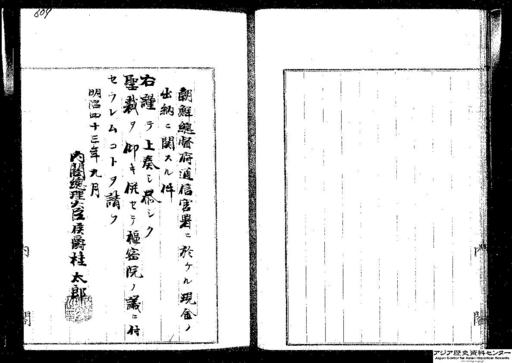 朝鮮總督府通信官署ニ於ケル現金ノ
出納ニ関スル件
右謹テ上奏シ恭シク
聖裁ヲ仰キ併セテ樞密院ノ議ニ付
セラレムコトヲ請フ
明治四十三年九月
内閣總理大臣侯爵桂太郎
内閣
アジア歴史資料センター
Japan Center for Asian Historical Records